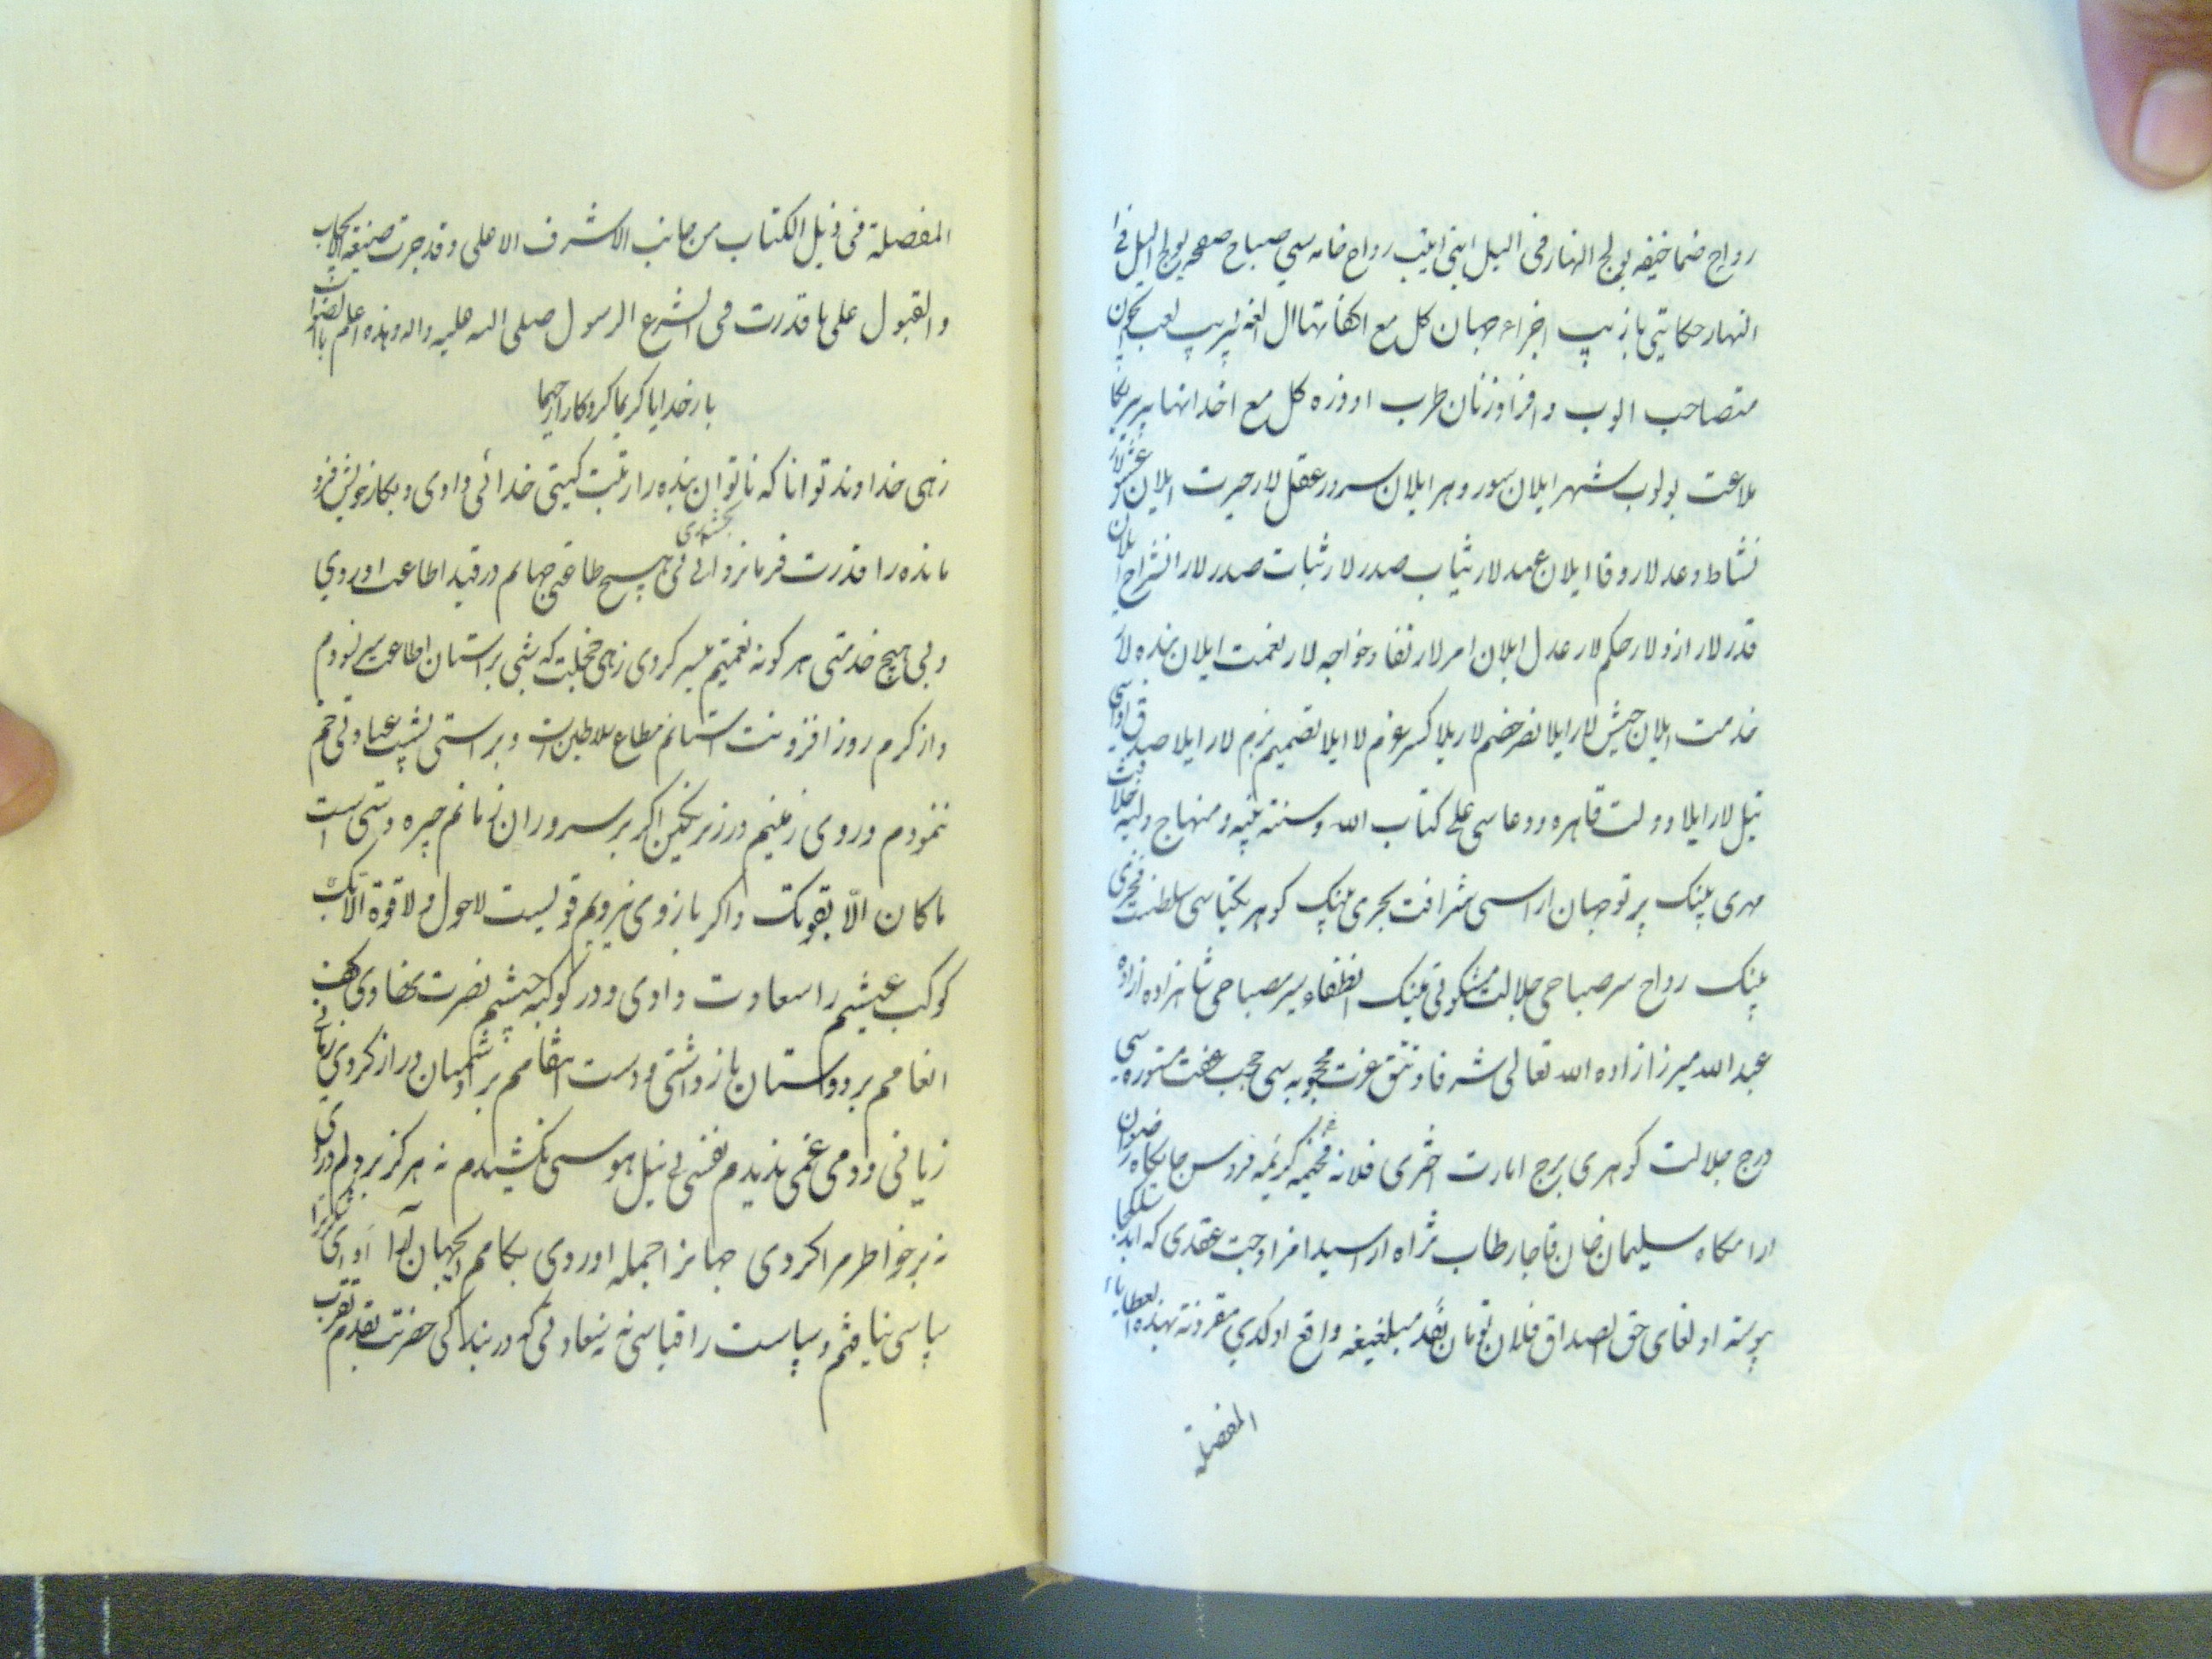 رواج ضما خیفه یولج النهار فی اللیل ایتی ایتیب رواح خانه سی صباح یولج اللیل فی
النهار حکایتی یازیب اجزاء جهان کل مع اکفائها ال الغه بیریب لعب
متصاحب الوب و افراد زنان طرب اوزره کل مع اخدانها
ملاعت بولوب شهر ایلان سور و هر ایلان سرور عقل لار حیرت ایلان
نشاط وعد لار وفا ایلان عهد لار ثیاب صدر لار ثبات صدر لار انشراح ایلان
قدر لار ازو لار حکم لار عدل ایلان امر لار نفاد خواجه لار نعمت ایلان بنده لار
خدمت ایلان جیش لار ایلا نصر خصم لار یلا کسر عزم لا ایلا تصمیم بزم لار ایلا
نیل لار ایلا دولت قاهره و دعاسی علی کتاب الله و سنة نبیه و منهاج ولیه
مهری ینک پرتو جهان اراسی شرافت بحری ینک کوهر یکتاسی سلطنت
ینک رواح سر صباحی جلالت مشکوتی ینک مصباحی شاهزاده ازاده
عبدالله میرزا زاده الله تعالی شرفا و تتق عزت محجوبه سی حجب عفت مستوره سی
درج جلالت کوهری برج امارت اختری فلانه کریمه فردوس جایکاه رضوان
ارامکاه سلیمان خان قاجار طاب ثراه ارا سیدا مزاوجت عقدی که ابد
پیوسته اولغای حق الصداق فلان تومان نقد مبلغیغه واقع اولدی مقرونة بهذه العطایاء
المفصلة
المفصلة فی ذیل الکتاب من جانب الاشرف الاعلی و قد جرت صیغة الایجاب
والقبول علی ما قدرت فی الشرع الرسول صلی الله علیه واله و هذه اعلم بالصواب
بار خدایا کریما کردکارا رحیما
زهی خداوند توانا که ناتوان بنده را رتبت کیتی خدائی دادی و بکار خویش فرو
مانده را قدرت فرمانروائی بخشیدی بی هیچ طاعتی جهانم در قید اطاعت اوردی
و بی هیچ خدمتی هر کونه نعمتیم میسر کردی زهی خجلت که شبی بر استان اطاعت سر نسودم
و از کرم روز افزونت استانم مطاع سلاطین است و براستی پشت عبادتی خم
ننمودم و روی زمینم در زیر نکین اکر بر سروران زمانم چیره دستی است
ما کان الّا بقوتک و اکر بازوی نیرویم قویست لاحول و لا قوة الّا بک
کوکب عیشم را سعادت دادی و در کوکبه جیشم نصرت نهادی کف
انعامم بر دوستان باز داشتی و دست انتقامم بر دشمنان دراز کردی زمانی
زیانی و دمی غمی ندیدم نفسی بی نیل هوسی نکشیدم نه هرکز بر دلم
نه بر خواطرم اکردی جهانرا جمله اوردی بکامم
سپاسی نیافتم و سپاست را قیاسی نه نه عادتی که در بندکی حضرتت بقدم تقرب